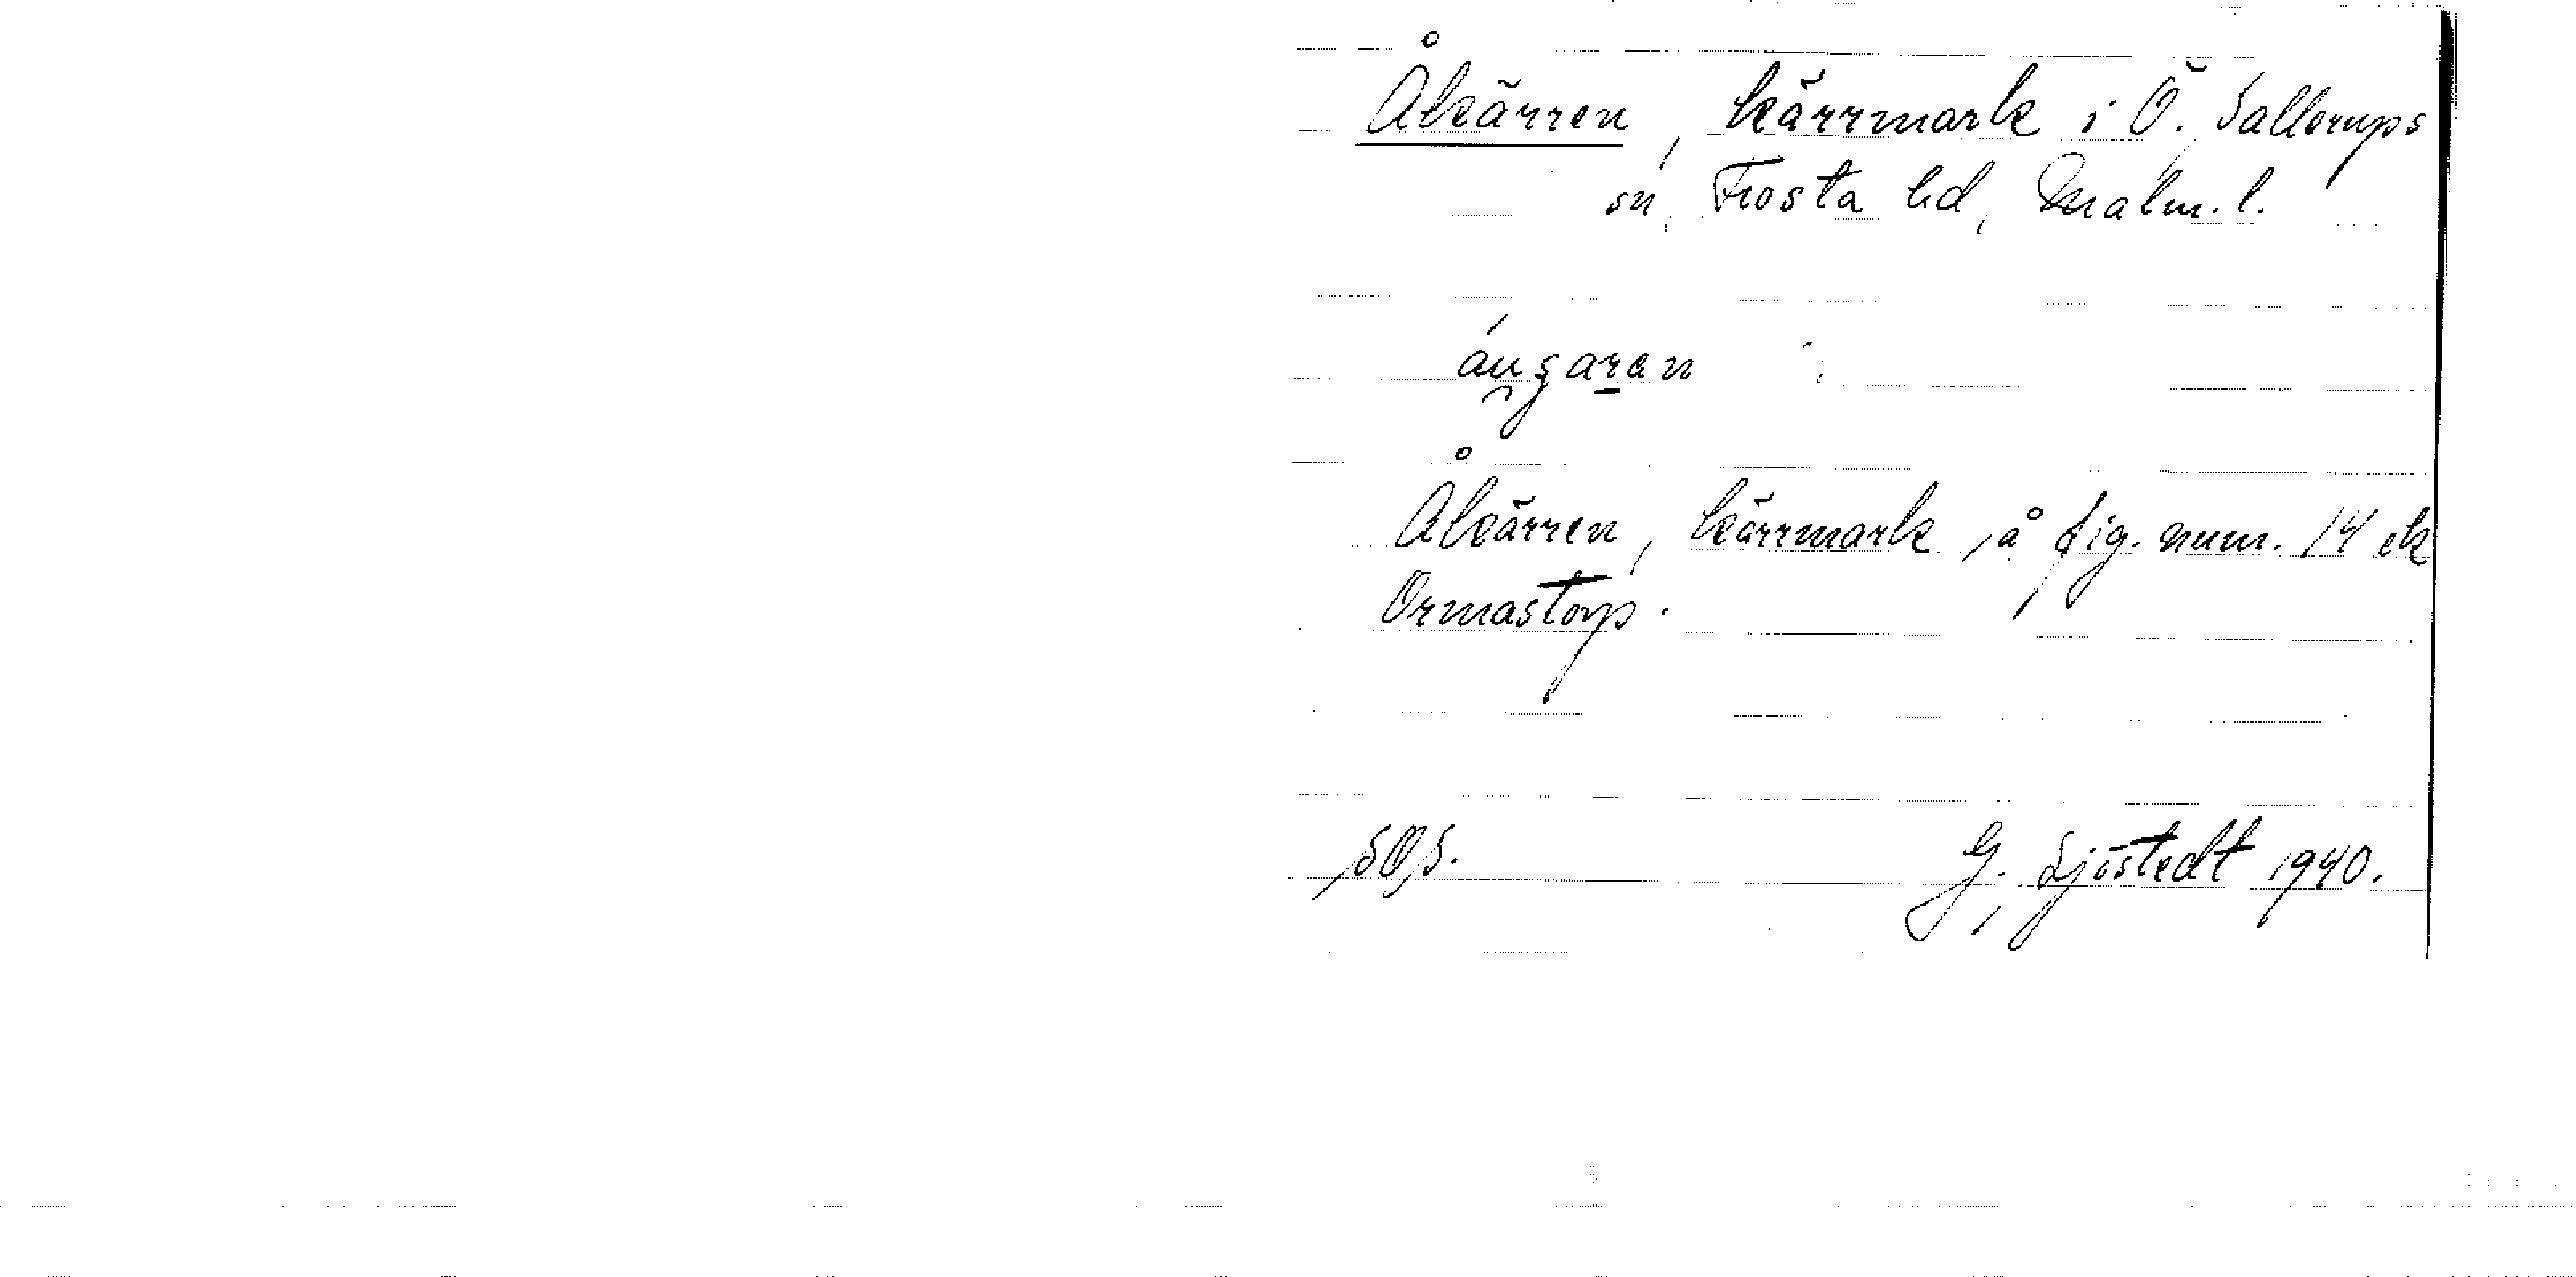 Åkärren, kärrmark i Ö. Sallerups
sn, Frosta hd, Malm. l.
Åkärren, kärrmark, å fig. num. 14 ek
Ormastorp.
SOS. G. Sjöstedt 1940.